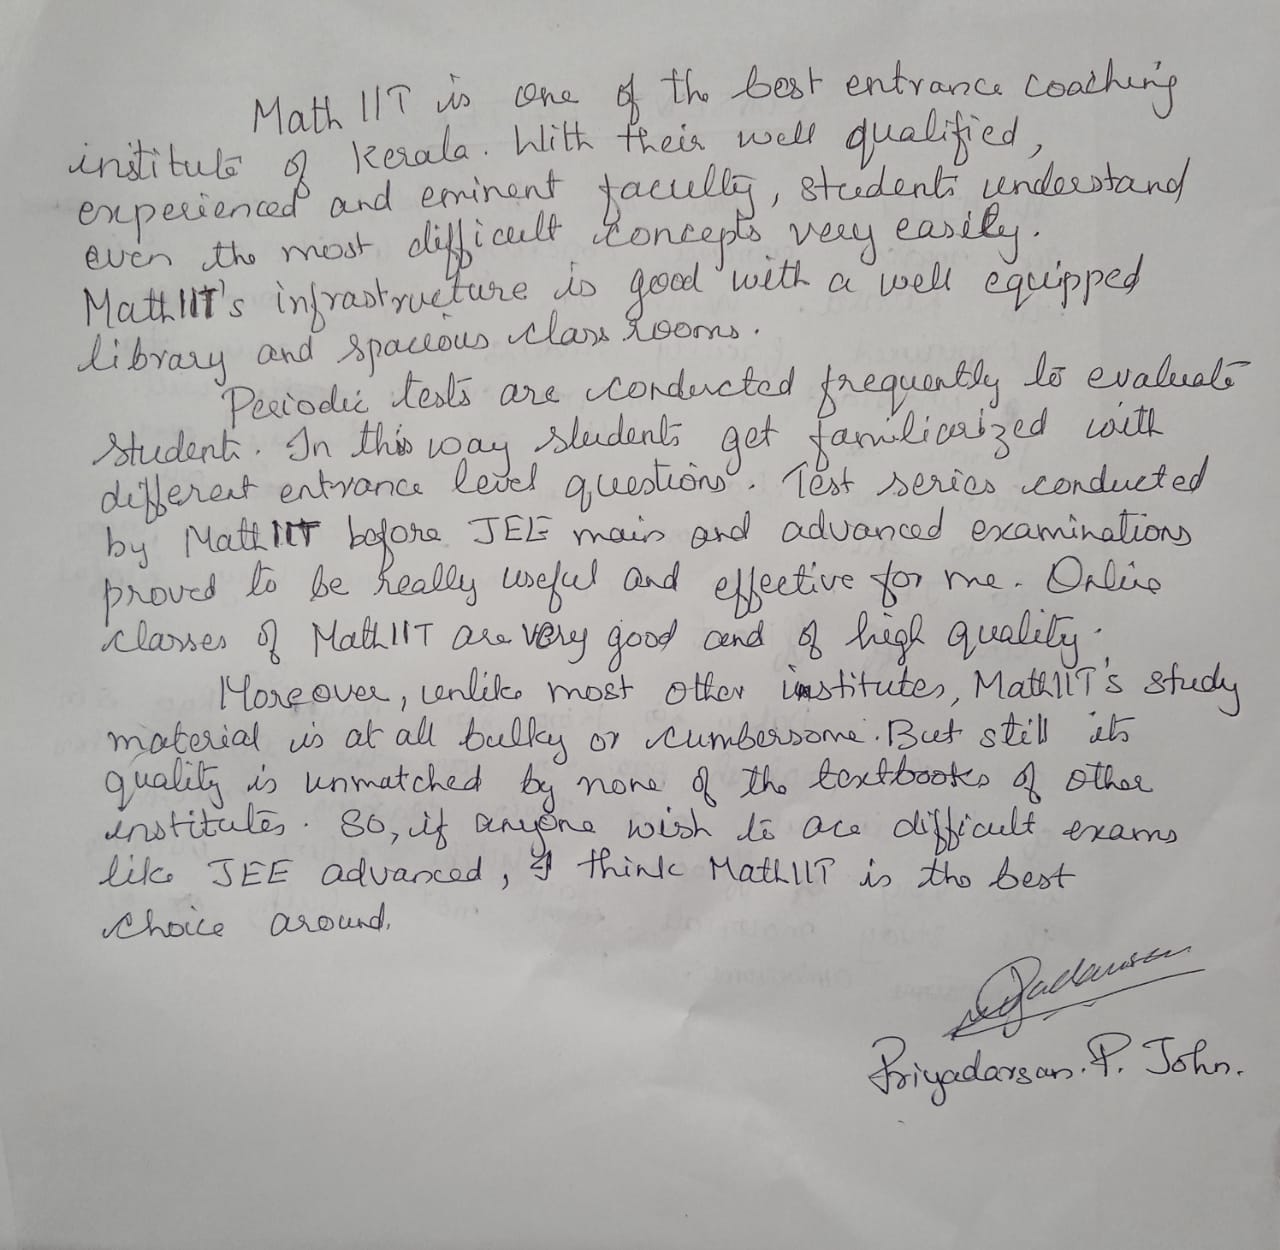 Math IIT is one of the best entrance coaching
institute of Kerala. With their well qualified,
experienced and eminent faculty, students understand
even the most difficult concepts very easily.
MathIIT's infrastructure is good with a well equipped
library and spacious class rooms.
Periodic tests are conducted frequently to evaluate
student. In this way students get familiarized with
different entrance level questions. Test series conducted
by MathIIT before JEE main and advanced examinations
proved to be really useful and effective for me. Online
classes of MathIIT are very good and of high quality.
Moreover, unlike most other institutes, MathIIT's study
material is at all bulky or cumbersome. But still its
quality is unmatched by none of the textbooks of other
institutes. So, if anyone wish to ace difficult exams
like JEE advanced, I think MathIIT is the best
choice around.
Priyadarsan. P. John.